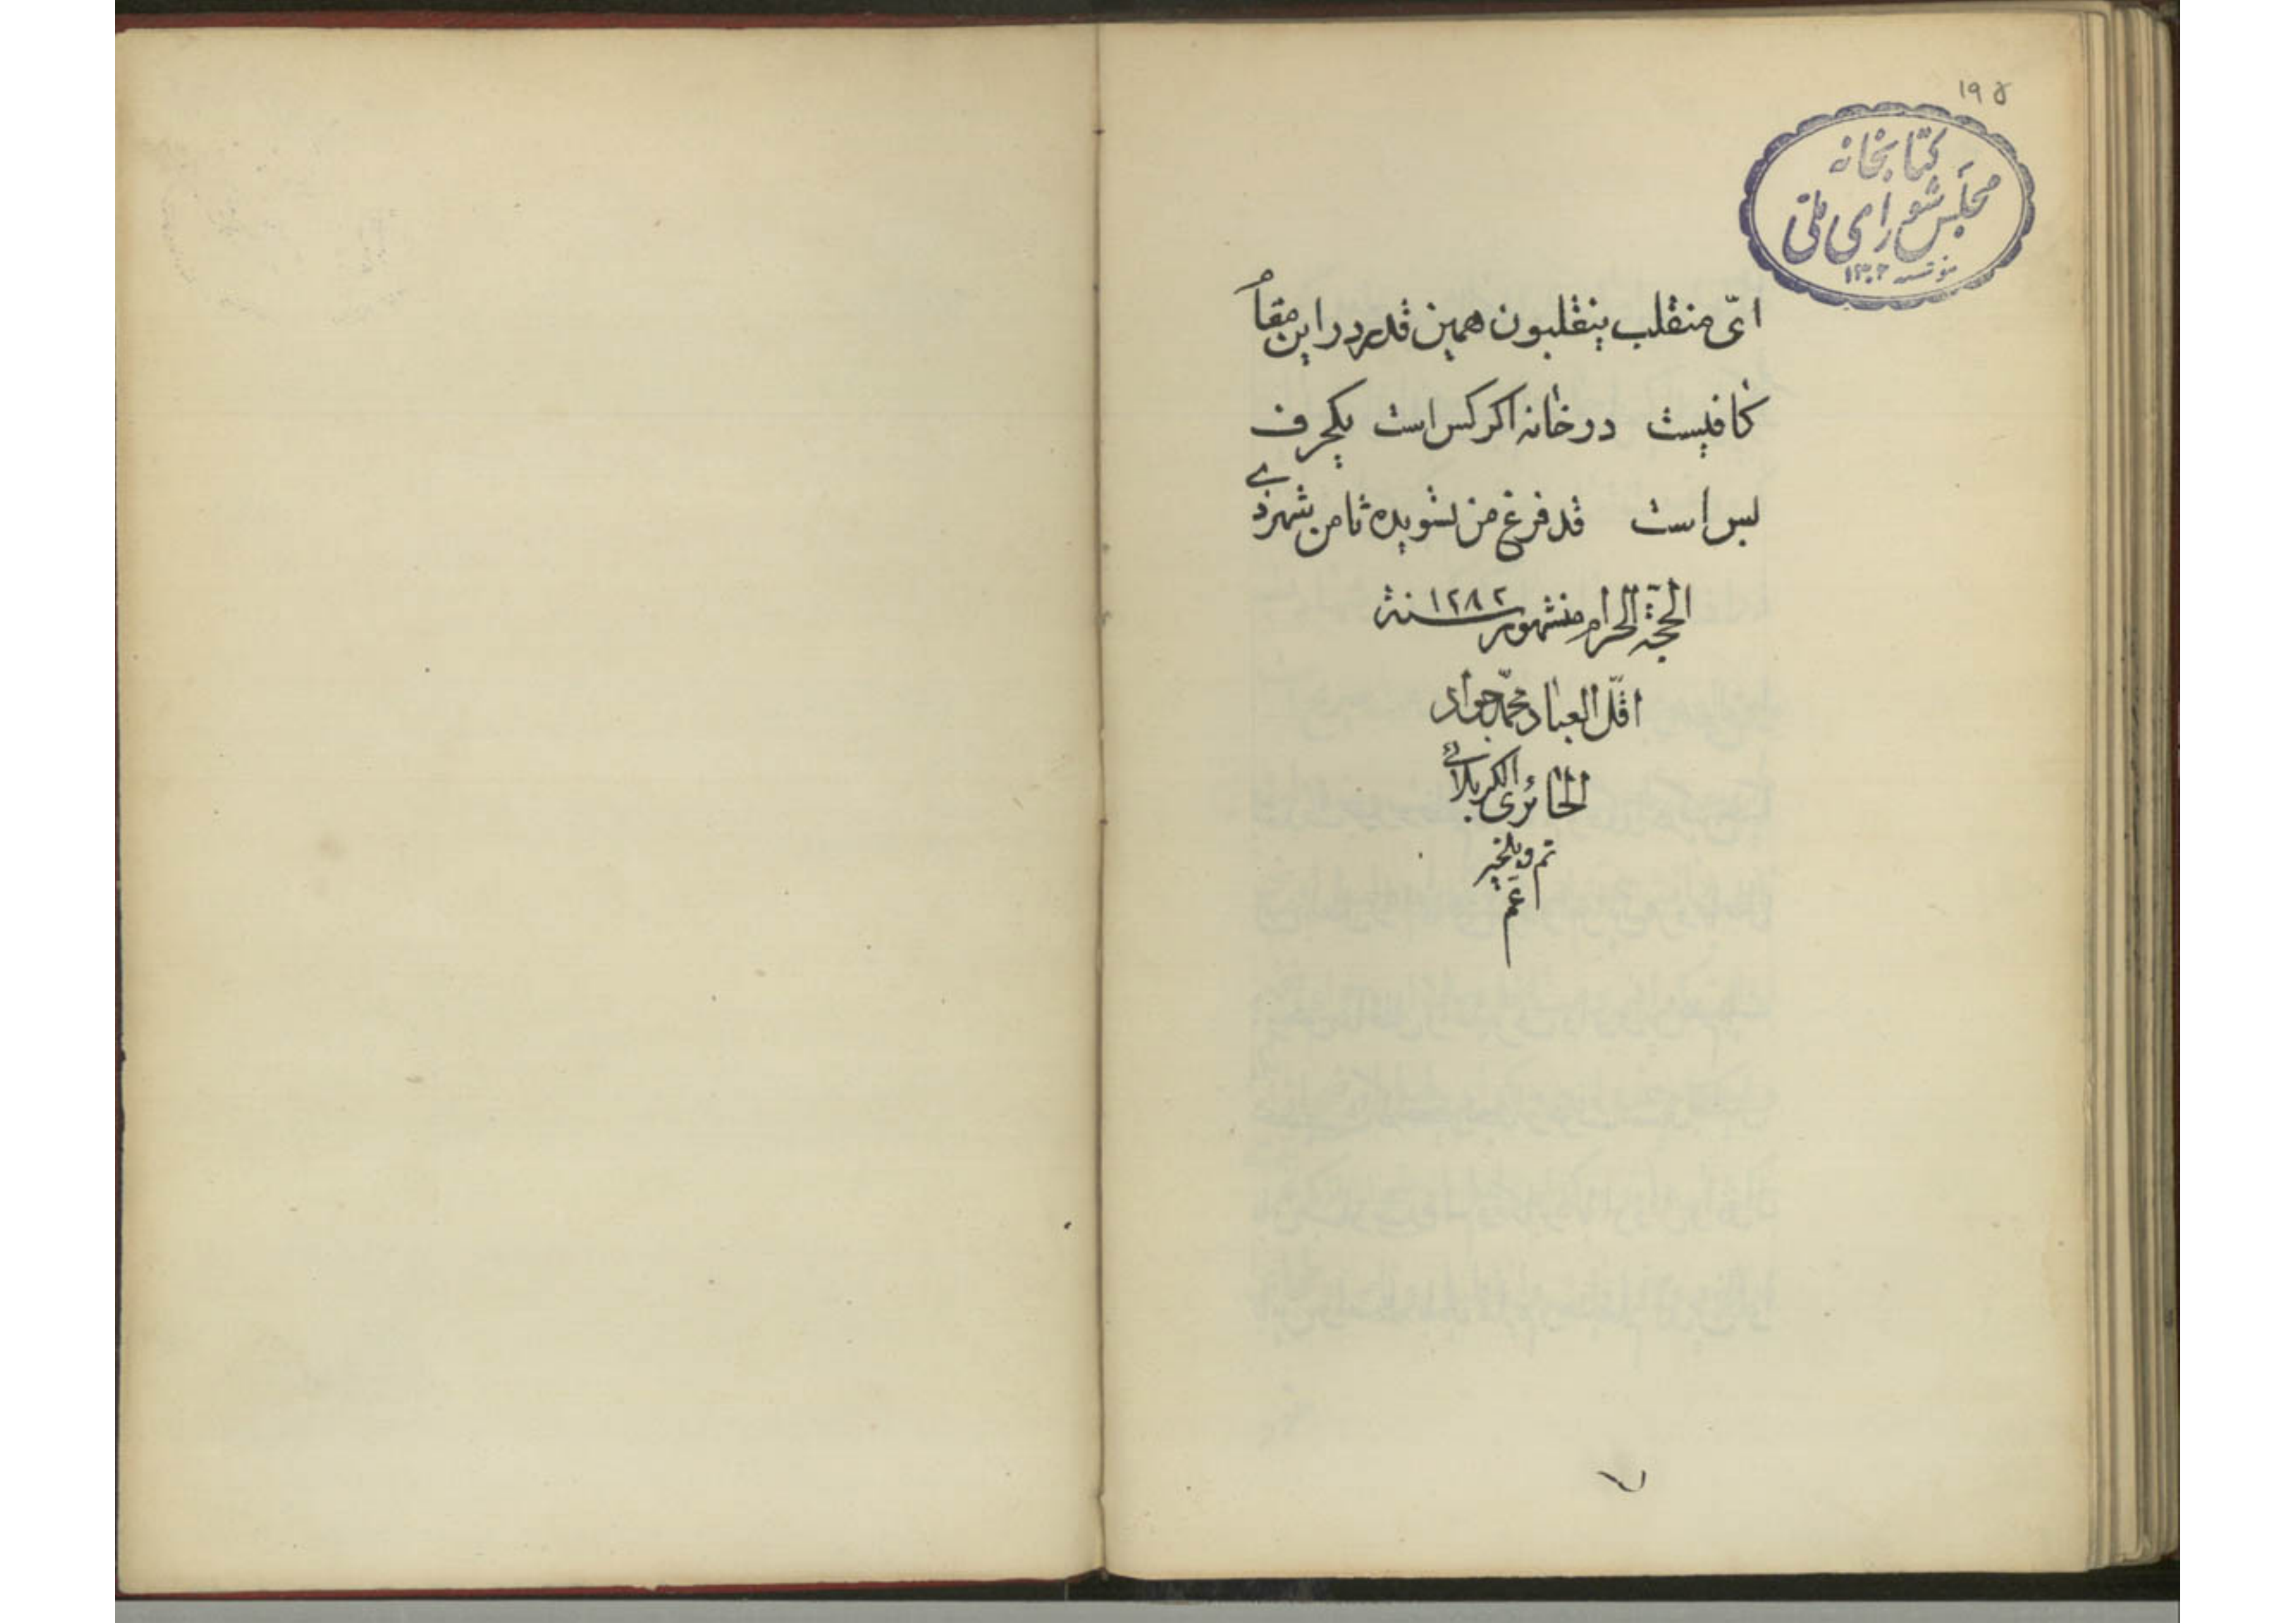 ۱۹۵
کتابخانه
مجلس شورای ملی
۱۳۰۲
ایّ منقلب ینقلبون همین قدر در این مقام
کافیست در خانه اکر کس است یکحرف
بس است قد فرغ من تسویده ثامن شهر ذی
الحجّة الحرام من شهور سنة ۱۲۸۲
اقلّ العباد محمّد جواد
الحائری الکربلائی
تم و بالخیر
عم